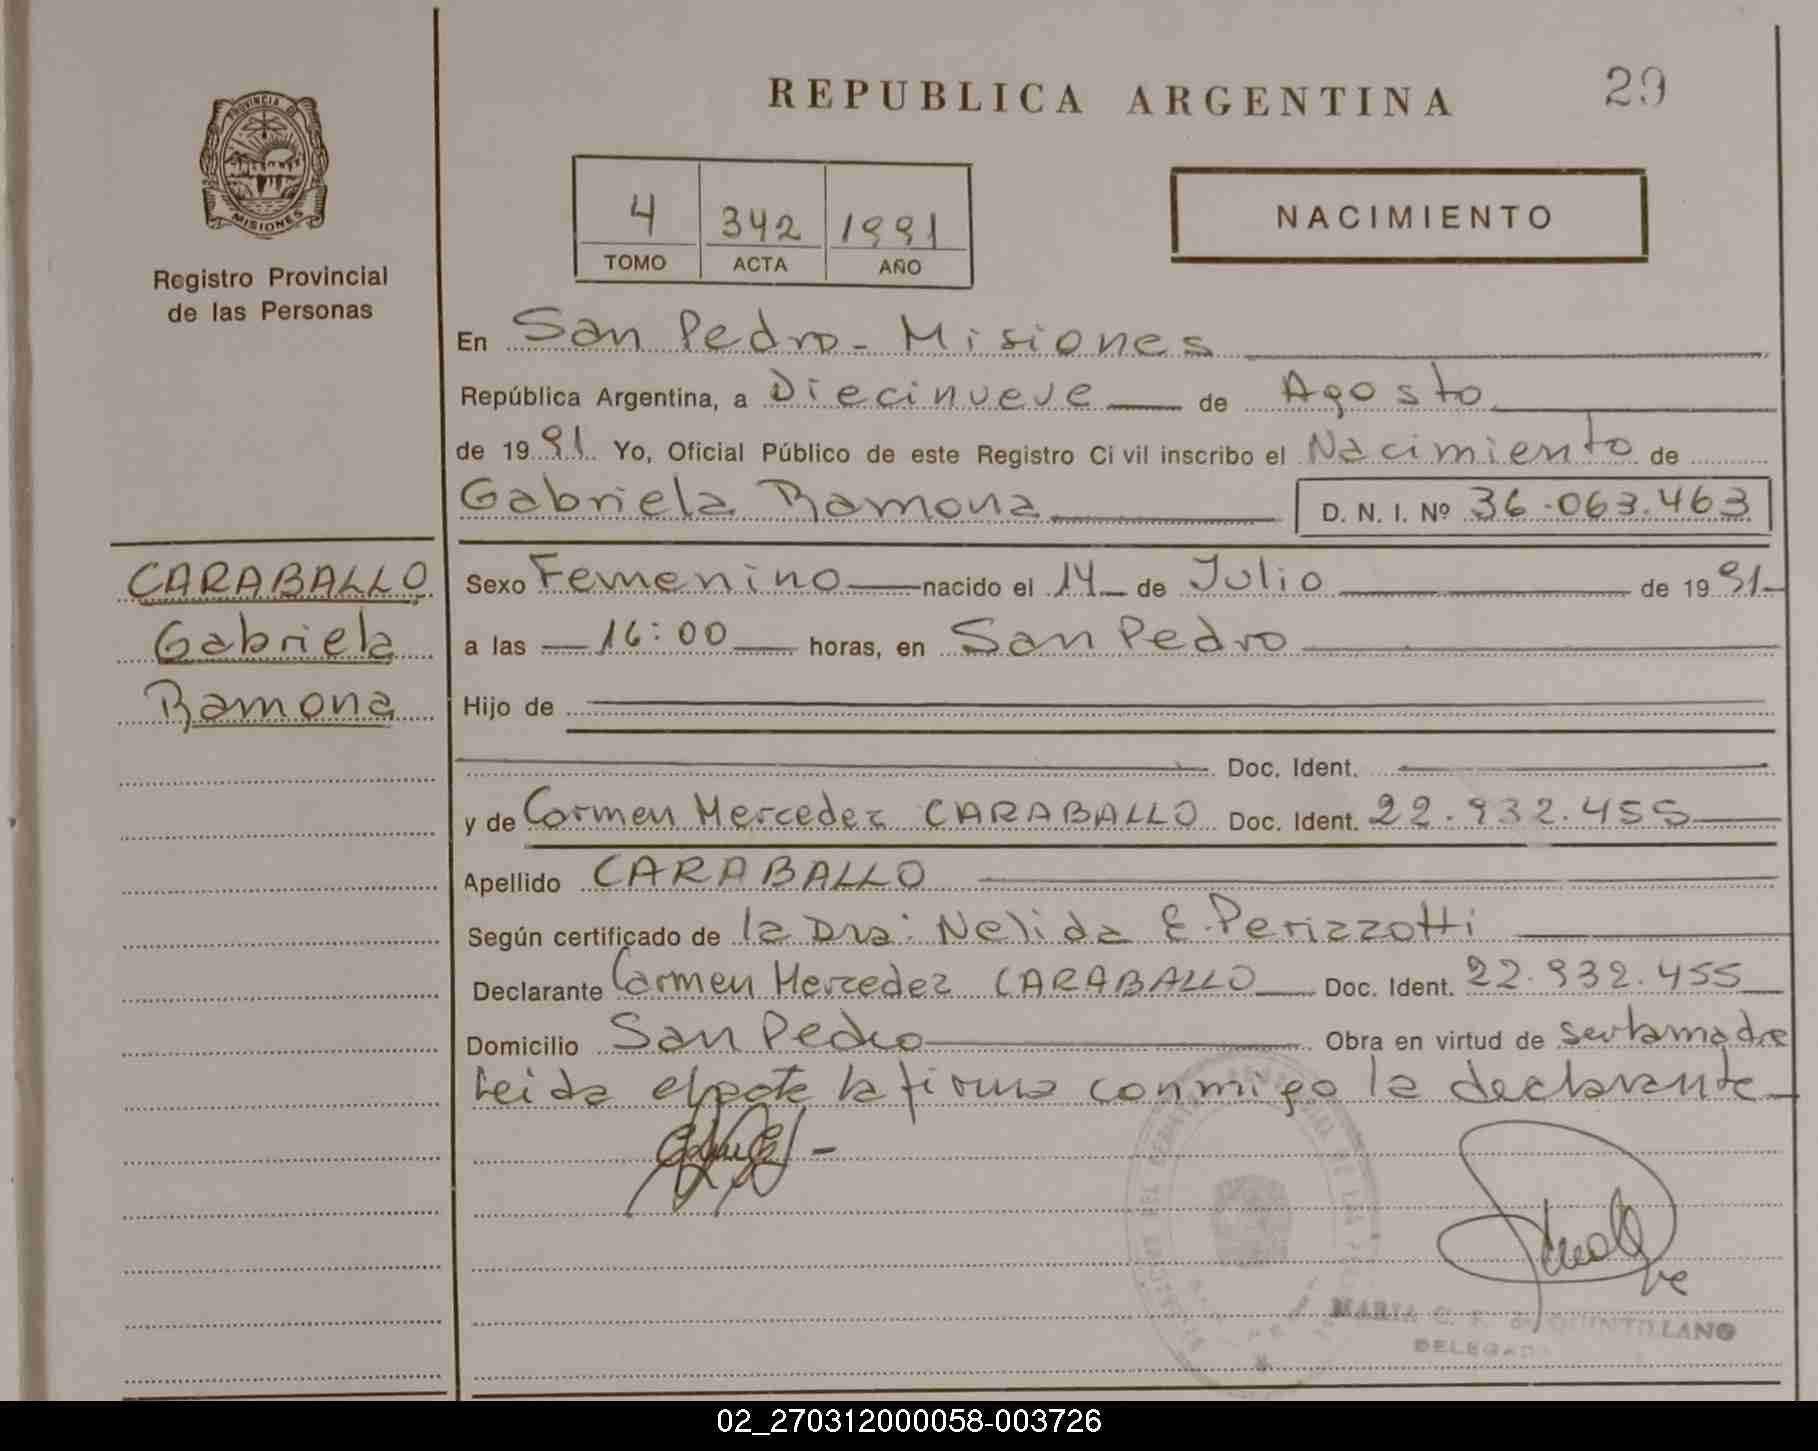 REPUBLICA ARGENTINA
29
PROVINCIA DE
MISIONES
Registro Provincial
de las Personas
4 342 1991
TOMO ACTA AÑO
NACIMIENTO
En San Pedro - Misiones
República Argentina, a Diecinueve de Agosto
de 1991 Yo, Oficial Público de este Registro Civil inscribo el Nacimiento de
Gabriela Ramona D. N. I. Nº 36.063.463
CARABALLO
Gabriela
Ramona
Sexo Femenino nacido el 14 de Julio de 1991
a las 16:00 horas, en San Pedro
Hijo de
Doc. Ident.
y de Carmen Mercedez CARABALLO Doc. Ident. 22.932.455
Apellido CARABALLO
Según certificado de la Dra: Nelida E. Perizzotti
Declarante Carmen Mercedez CARABALLO Doc. Ident. 22.932.455
Domicilio San Pedro Obra en virtud de ser la madre
Leida el acta la firma conmigo la declarante
MARIA C. F. de QUINTILLANO
DELEGADA
02_270312000058-003726